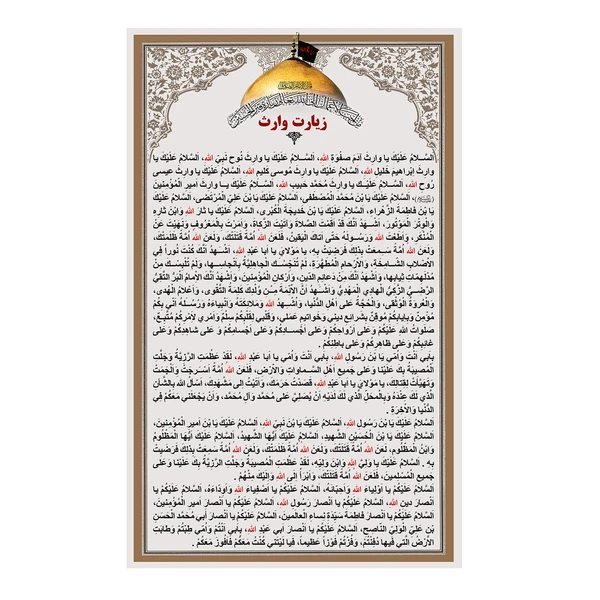 زیارت وارث
اَلسَّلامُ عَلَیْکَ یا وارِثَ آدَمَ صَفْوَةِ اللهِ، اَلسَّلامُ عَلَیْکَ یا وارِثَ نُوحٍ نَبِیِّ اللهِ، اَلسَّلامُ عَلَیْکَ یا
وارِثَ اِبْراهیمَ خَلیلِ اللهِ، اَلسَّلامُ عَلَیْکَ یا وارِثَ مُوسی کَلیمِ اللهِ، اَلسَّلامُ عَلَیْکَ یا وارِثَ عیسی
رُوحِ اللهِ، اَلسَّلامُ عَلَیْکَ یا وارِثَ مُحَمَّدٍ حَبیبِ اللهِ، اَلسَّلامُ عَلَیْکَ یا وارِثَ اَمیرِ الْمُؤْمِنینَ
اَلسَّلامُ عَلَیْکَ یَا بْنَ مُحَمَّدٍ الْمُصْطَفی، اَلسَّلامُ عَلَیْکَ یَا بْنَ عَلِیٍّ الْمُرْتَضی، اَلسَّلامُ عَلَیْکَ
یَا بْنَ فاطِمَةَ الزَّهْراءِ، اَلسَّلامُ عَلَیْکَ یَا بْنَ خَدیجَةَ الْکُبْری، اَلسَّلامُ عَلَیْکَ یا ثارَ اللهِ وَابْنَ ثارِهِ
وَالْوِتْرَ الْمَوْتُورَ، اَشْهَدُ اَنَّکَ قَدْ اَقَمْتَ الصَّلاةَ وَآتَیْتَ الزَّکاةَ، وَاَمَرْتَ بِالْمَعْرُوفِ وَنَهَیْتَ عَنِ
الْمُنْکَرِ، وَاَطَعْتَ اللهَ وَرَسُولَهُ حَتّی اَتاکَ الْیَقینُ، فَلَعَنَ اللهُ اُمَّةً قَتَلَتْکَ، وَلَعَنَ اللهُ اُمَّةً ظَلَمَتْکَ،
وَلَعَنَ اللهُ اُمَّةً سَمِعَتْ بِذلِکَ فَرَضِیَتْ بِهِ، یا مَوْلایَ یا اَبا عَبْدِ اللهِ، اَشْهَدُ اَنَّکَ کُنْتَ نُوراً فِی
الاَْصْلابِ الشّامِخَةِ، وَالاَْرْحامِ الْمُطَهَّرَةِ، لَمْ تُنَجِّسْکَ الْجاهِلِیَّةُ بِاَنْجاسِها، وَلَمْ تُلْبِسْکَ مِنْ
مُدْلَهِمّاتِ ثِیابِها، وَاَشْهَدُ اَنَّکَ مِنْ دَعائِمِ الدّینِ، وَاَرْکانِ الْمُؤْمِنینَ، وَاَشْهَدُ اَنَّکَ الاِْمامُ الْبَرُّ التَّقِیُّ
الرَّضِیُّ الزَّکِیُّ الْهادِی الْمَهْدِیُّ وَاَشْهَدُ اَنَّ الاَْئِمَّةَ مِنْ وُلْدِکَ کَلِمَةُ التَّقْوی، وَاَعْلامُ الْهُدی،
وَالْعُرْوَةُ الْوُثْقی، وَالْحُجَّةُ عَلی اَهْلِ الدُّنْیا، وَاُشْهِدُ اللهَ وَمَلائِکَتَهُ وَاَنْبِیاءَهُ وَرُسُلَهُ اَنّی بِکُمْ
مُؤْمِنٌ وَبِاِیابِکُمْ مُوقِنٌ بِشَرایِعِ دینی وَخَواتیمِ عَمَلی، وَقَلْبی لِقَلْبِکُمْ سِلْمٌ وَاَمْری لاَِمْرِکُمْ مُتَّبِعٌ،
صَلَواتُ اللهِ عَلَیْکُمْ وَعَلی اَرْواحِکُمْ وَعَلی اَجْسادِکُمْ وَعَلی اَجْسامِکُمْ وَعَلی شاهِدِکُمْ وَعَلی
غائِبِکُمْ وَعَلی ظاهِرِکُمْ وَعَلی باطِنِکُمْ .
بِاَبی اَنْتَ وَاُمّی یَا بْنَ رَسُولِ اللهِ، بِاَبی اَنْتَ وَاُمّی یا اَبا عَبْدِ اللهِ، لَقَدْ عَظُمَتِ الرَّزِیَّةُ وَجَلَّتِ
الْمُصیبَةُ بِکَ عَلَیْنا وَعَلی جَمیعِ اَهْلِ السَّماواتِ وَالاَْرْضِ، فَلَعَنَ اللهُ اُمَّةً اَسْرَجَتْ وَاَلْجَمَتْ
وَتَهَیَّأَتْ لِقِتالِکَ، یا مَوْلایَ یا اَبا عَبْدِ اللهِ، قَصَدْتُ حَرَمَکَ، وَاَتَیْتُ اِلی مَشْهَدِکَ، اَسْأَلُ اللهَ بِالشَّأْنِ
الَّذی لَکَ عِنْدَهُ وَبِالْمَحَلِّ الَّذی لَکَ لَدَیْهِ اَنْ یُصَلِّیَ عَلی مُحَمَّدٍ وَآلِ مُحَمَّدٍ، وَاَنْ یَجْعَلَنی مَعَکُمْ فِی
الدُّنْیا وَالآخِرَةِ .
اَلسَّلامُ عَلَیْکَ یَا بْنَ رَسُولِ اللهِ، اَلسَّلامُ عَلَیْکَ یَا بْنَ نَبِیِّ اللهِ، اَلسَّلامُ عَلَیْکَ یَا بْنَ اَمیرِ الْمُؤْمِنینَ،
اَلسَّلامُ عَلَیْکَ یَا بْنَ الْحُسَیْنِ الشَّهیدِ، اَلسَّلامُ عَلَیْکَ اَیُّهَا الشَّهیدُ، اَلسَّلامُ عَلَیْکَ اَیُّهَا الْمَظْلُومُ
وَابْنُ الْمَظْلُومِ، لَعَنَ اللهُ اُمَّةً قَتَلَتْکَ، وَلَعَنَ اللهُ اُمَّةً ظَلَمَتْکَ، وَلَعَنَ اللهُ اُمَّةً سَمِعَتْ بِذلِکَ فَرَضِیَتْ
بِهِ . اَلسَّلامُ عَلَیْکَ یا وَلِیَّ اللهِ وَابْنَ وَلِیِّهِ، لَقَدْ عَظُمَتِ الْمُصیبَةُ وَجَلَّتِ الرَّزِیَّةُ بِکَ عَلَیْنا وَعَلی
جَمیعِ الْمُسْلِمینَ، فَلَعَنَ اللهُ اُمَّةً قَتَلَتْکَ، وَاَبْرَأُ اِلَی اللهِ وَاِلَیْکَ مِنْهُمْ .
اَلسَّلامُ عَلَیْکُمْ یا اَوْلِیاءَ اللهِ وَاَحِبّائَهُ، اَلسَّلامُ عَلَیْکُمْ یا اَصْفِیاءَ اللهِ وَاَوِدّاءَهُ، اَلسَّلامُ عَلَیْکُمْ یا
اَنْصارَ دینِ اللهِ، اَلسَّلامُ عَلَیْکُمْ یا اَنْصارَ رَسُولِ اللهِ، اَلسَّلامُ عَلَیْکُمْ یا اَنْصارَ اَمیرِ الْمُؤْمِنینَ،
اَلسَّلامُ عَلَیْکُمْ یا اَنْصارَ فاطِمَةَ سَیِّدَةِ نِساءِ الْعالَمینَ، اَلسَّلامُ عَلَیْکُمْ یا اَنْصارَ اَبی مُحَمَّدٍ الْحَسَنِ
بْنِ عَلِیٍّ الْوَلِیِّ النّاصِحِ، اَلسَّلامُ عَلَیْکُمْ یا اَنْصارَ اَبی عَبْدِ اللهِ، بِاَبی اَنْتُمْ وَاُمّی طِبْتُمْ وَطابَتِ
الاَْرْضُ الَّتی فیها دُفِنْتُمْ، وَفُزْتُمْ فَوْزاً عَظیماً، فَیا لَیْتَنی کُنْتُ مَعَکُمْ فَاَفُوزَ مَعَکُمْ .